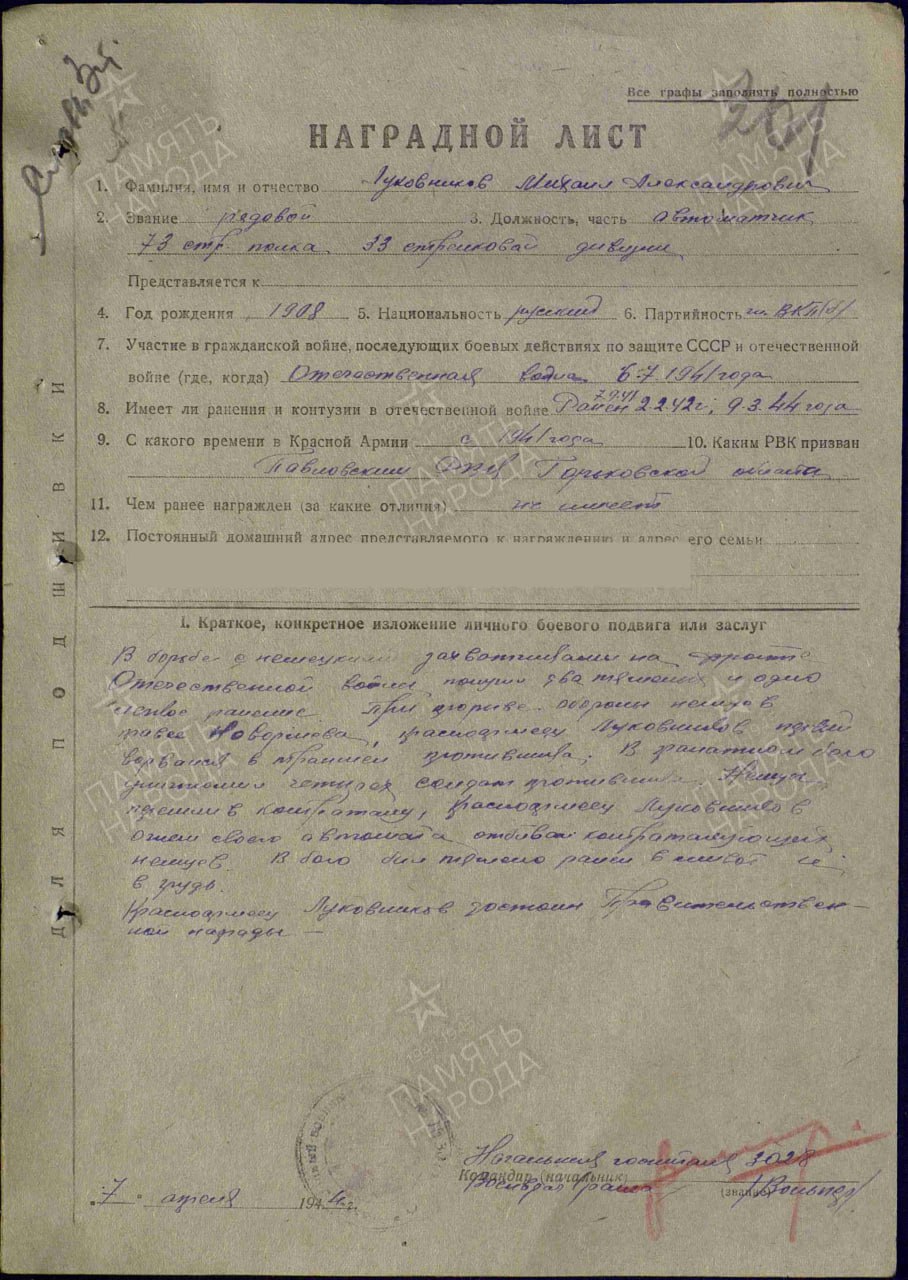 Все графы заполнять полностью
НАГРАДНОЙ ЛИСТ
1. Фамилия, имя и отчество Луковников Михаил Александрович
2. Звание рядовой 3. Должность, часть автоматчик
73 стр. полка 33 стрелковой дивизии
Представляется к
4. Год рождения 1908 5. Национальность русский 6. Партийность чл. ВКП(б)
7. Участие в гражданской войне, последующих боевых действиях по защите СССР и отечественной
войне (где, когда) Отечественная война 6.7.1941 года
7.9.41
8. Имеет ли ранения и контузии в отечественной войне Ранен 2.2.42 г., 9.3.44 года
9. С какого времени в Красной Армии с 1941 года 10. Каким РВК призван
Павловским РВК Горьковской области
11. Чем ранее награжден (за какие отличия) не имеет
12. Постоянный домашний адрес представляемого к награждению и адрес его семьи
I. Краткое, конкретное изложение личного боевого подвига или заслуг
В борьбе с немецкими захватчиками на фронте
Отечественной войны получил два тяжелых и одно
легкое ранение. При прорыве обороны немцев
Красноармеец Луковников первый
ворвался в траншеи противника. В гранатном бою
уничтожил четырех солдат противника. Немцы
перешли в контратаку, красноармеец Луковников
огнем своего автомата отбивал контратакующих
немцев. В бою был тяжело ранен в живот и
в грудь.
Красноармеец Луковников достоин Правительствен-
ной награды —
ДЛЯ ПОДШИВКИ
Начальник госпиталя 3028
Командир (начальник)
(звание)
7 апреля 1944 г.
ПАМЯТЬ
НАРОДА